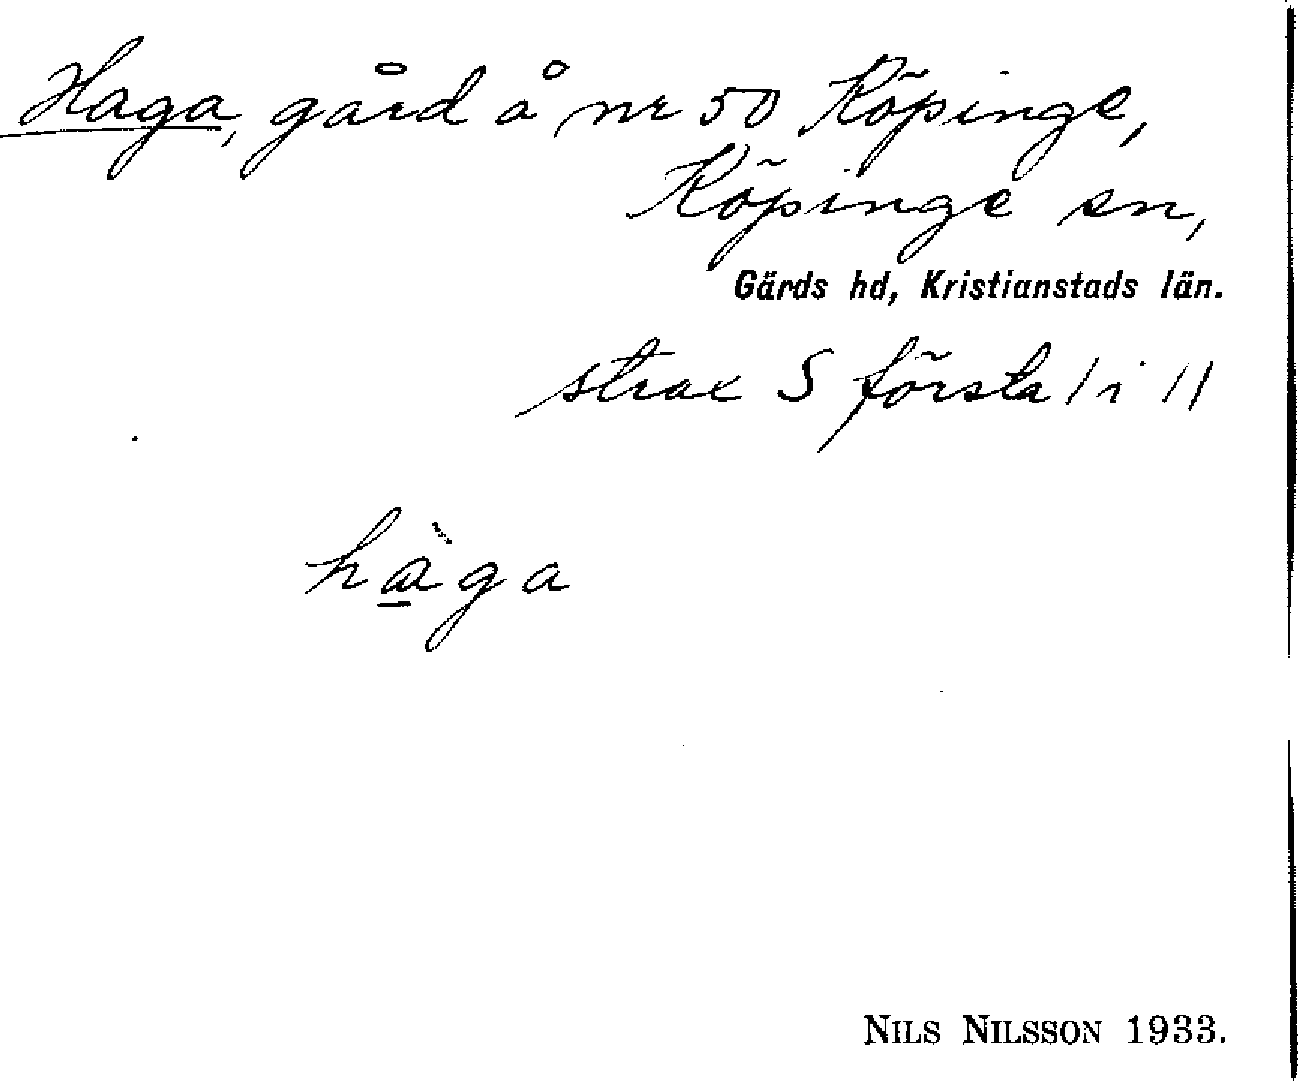 Haga, gård å nr 50 Köpinge,
Köpinge sn,
Gärds hd, Kristianstads län.
strax S första l i ll
hàga
NILS NILSSON 1933.